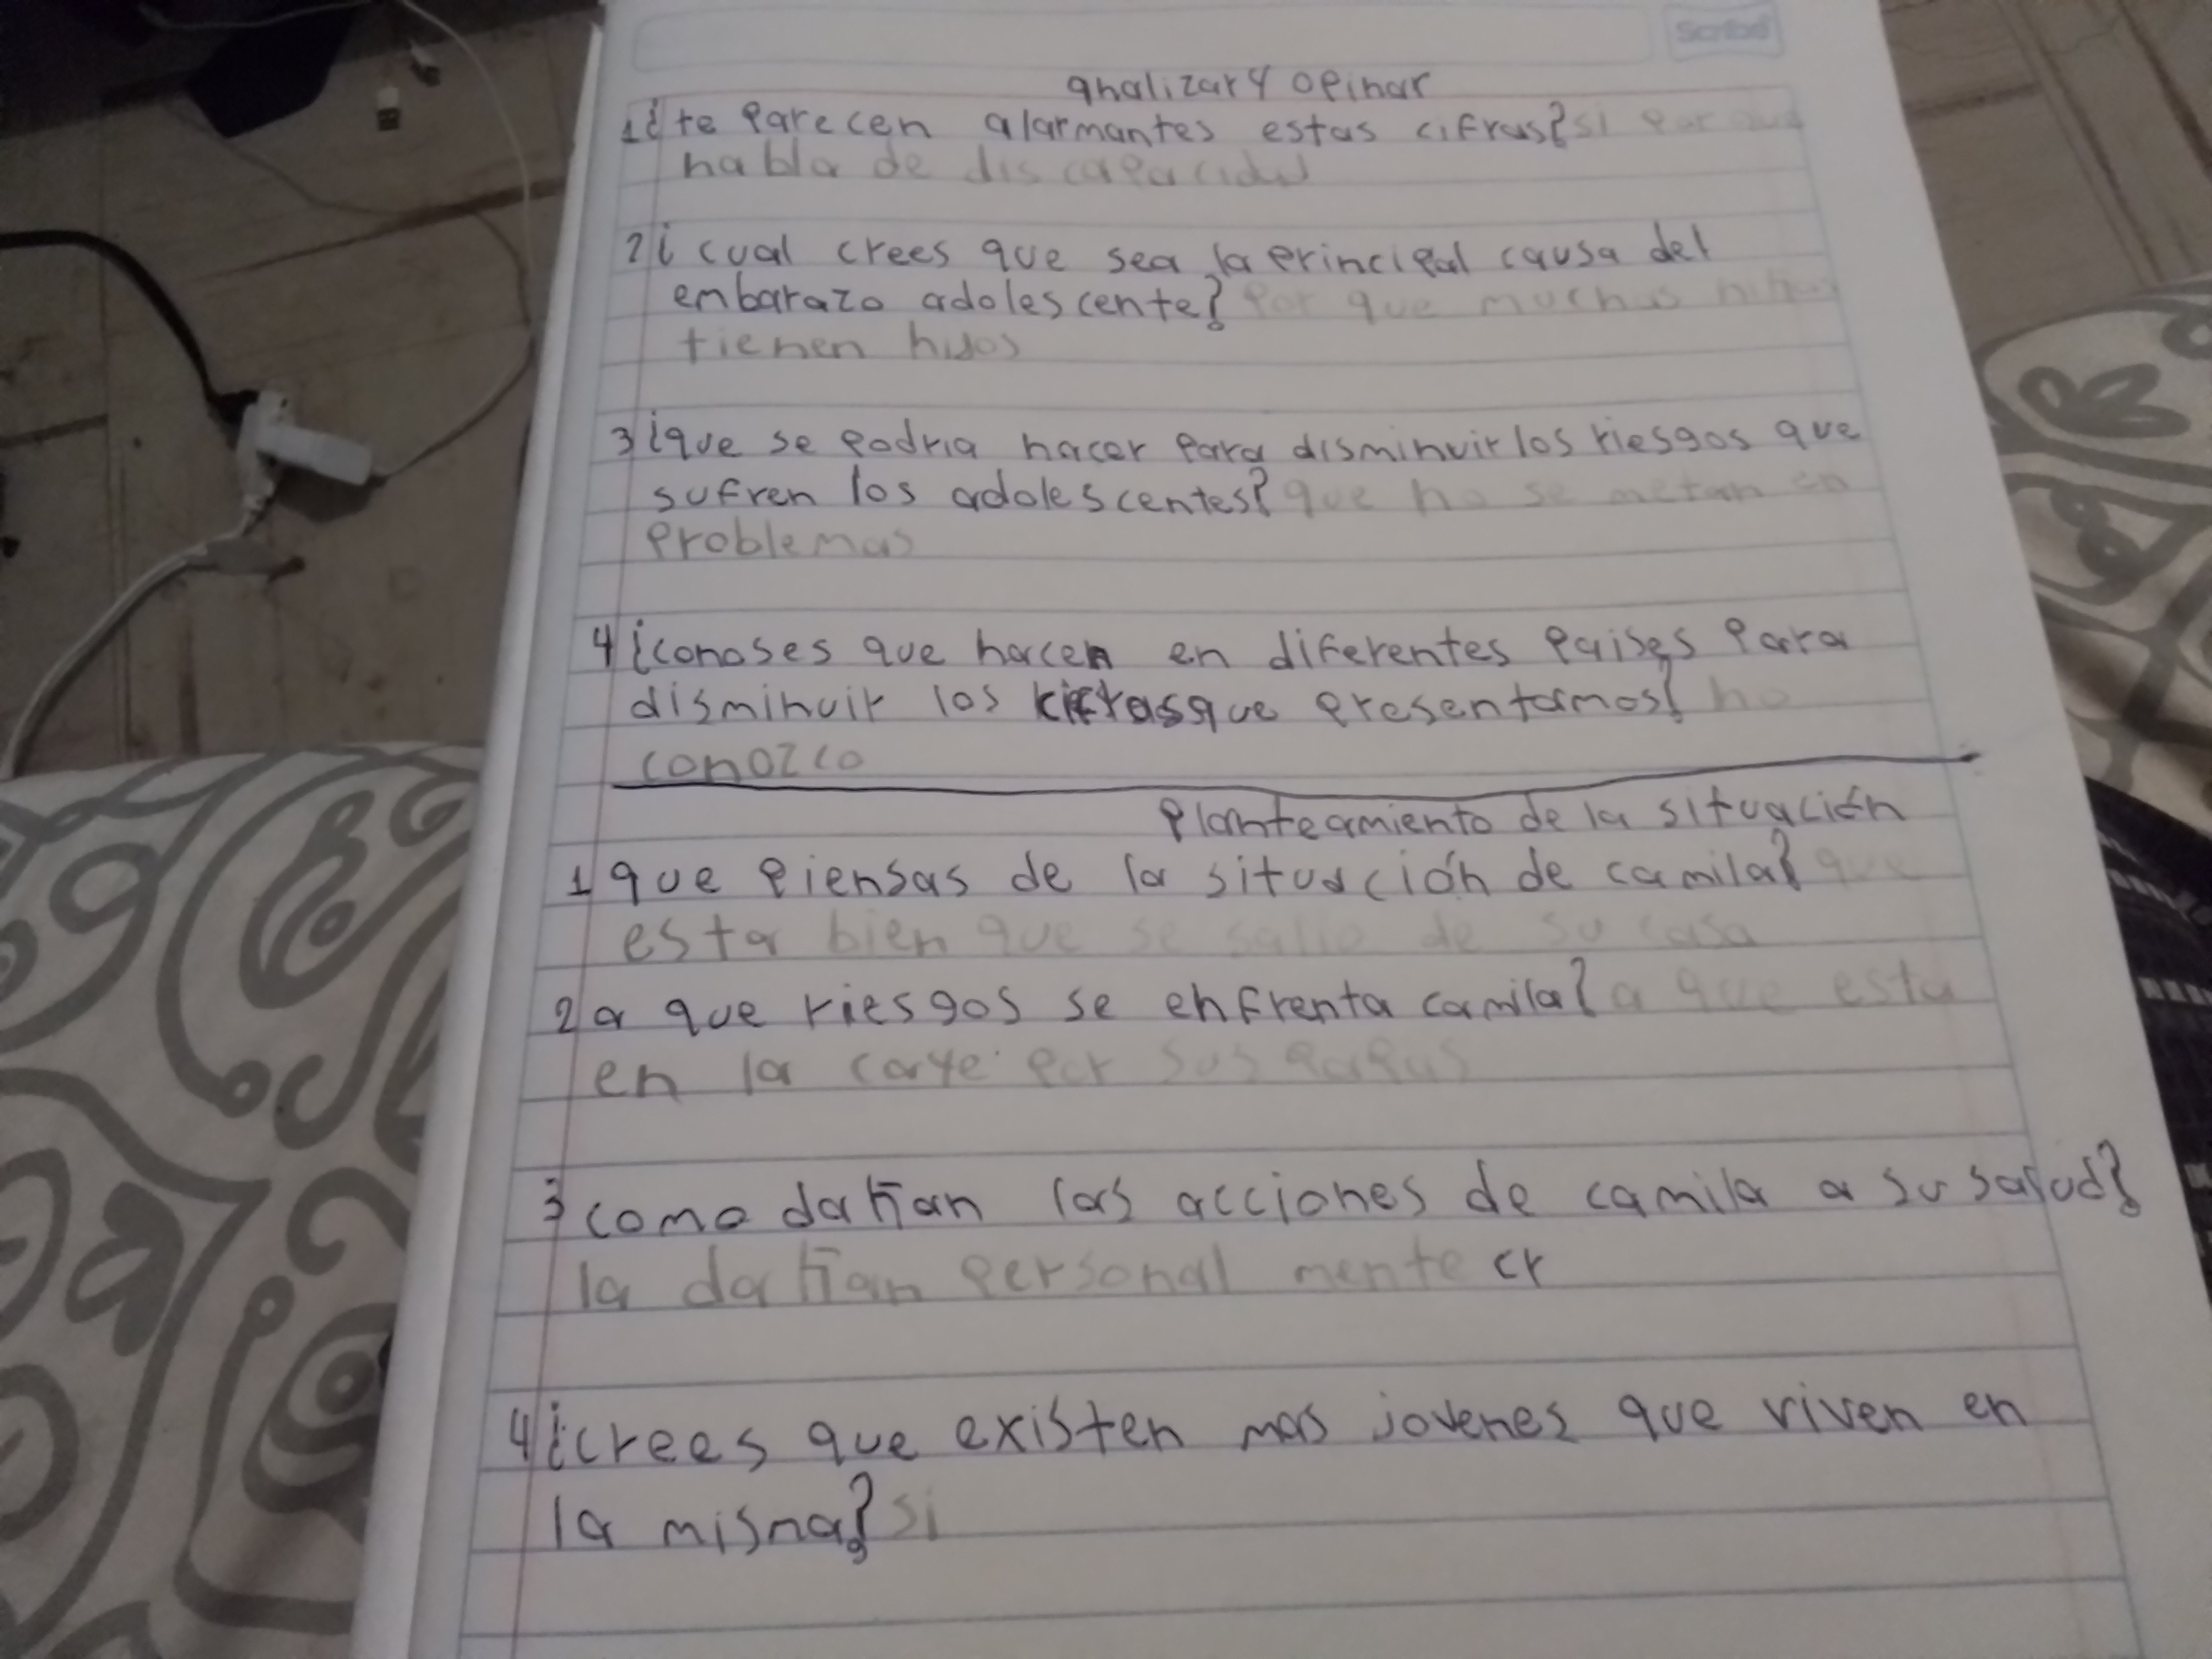 Scribe
analizar y opinar
1¿te parecen alarmantes estas cifras? si por que
habla de discapacidad
2¿cual crees que sea la principal causa del
embarazo adolescente? por que muchas niñas
tienen hijos
3¿que se podria hacer para disminuir los riesgos que
sufren los adolescentes? que no se metan en
problemas
4¿conoses que hacen en diferentes paises para
disminuir los cifras que presentamos? no
conozco
planteamiento de la situación
1 que piensas de la situación de camila? que
esta bien que se salio de su casa
2 a que riesgos se enfrenta camila? a que esta
en la caye por sus papas
3 como dañan las acciones de camila a su salud?
la dañan personal mente cr
4¿crees que existen mas jovenes que viven en
la misma? si